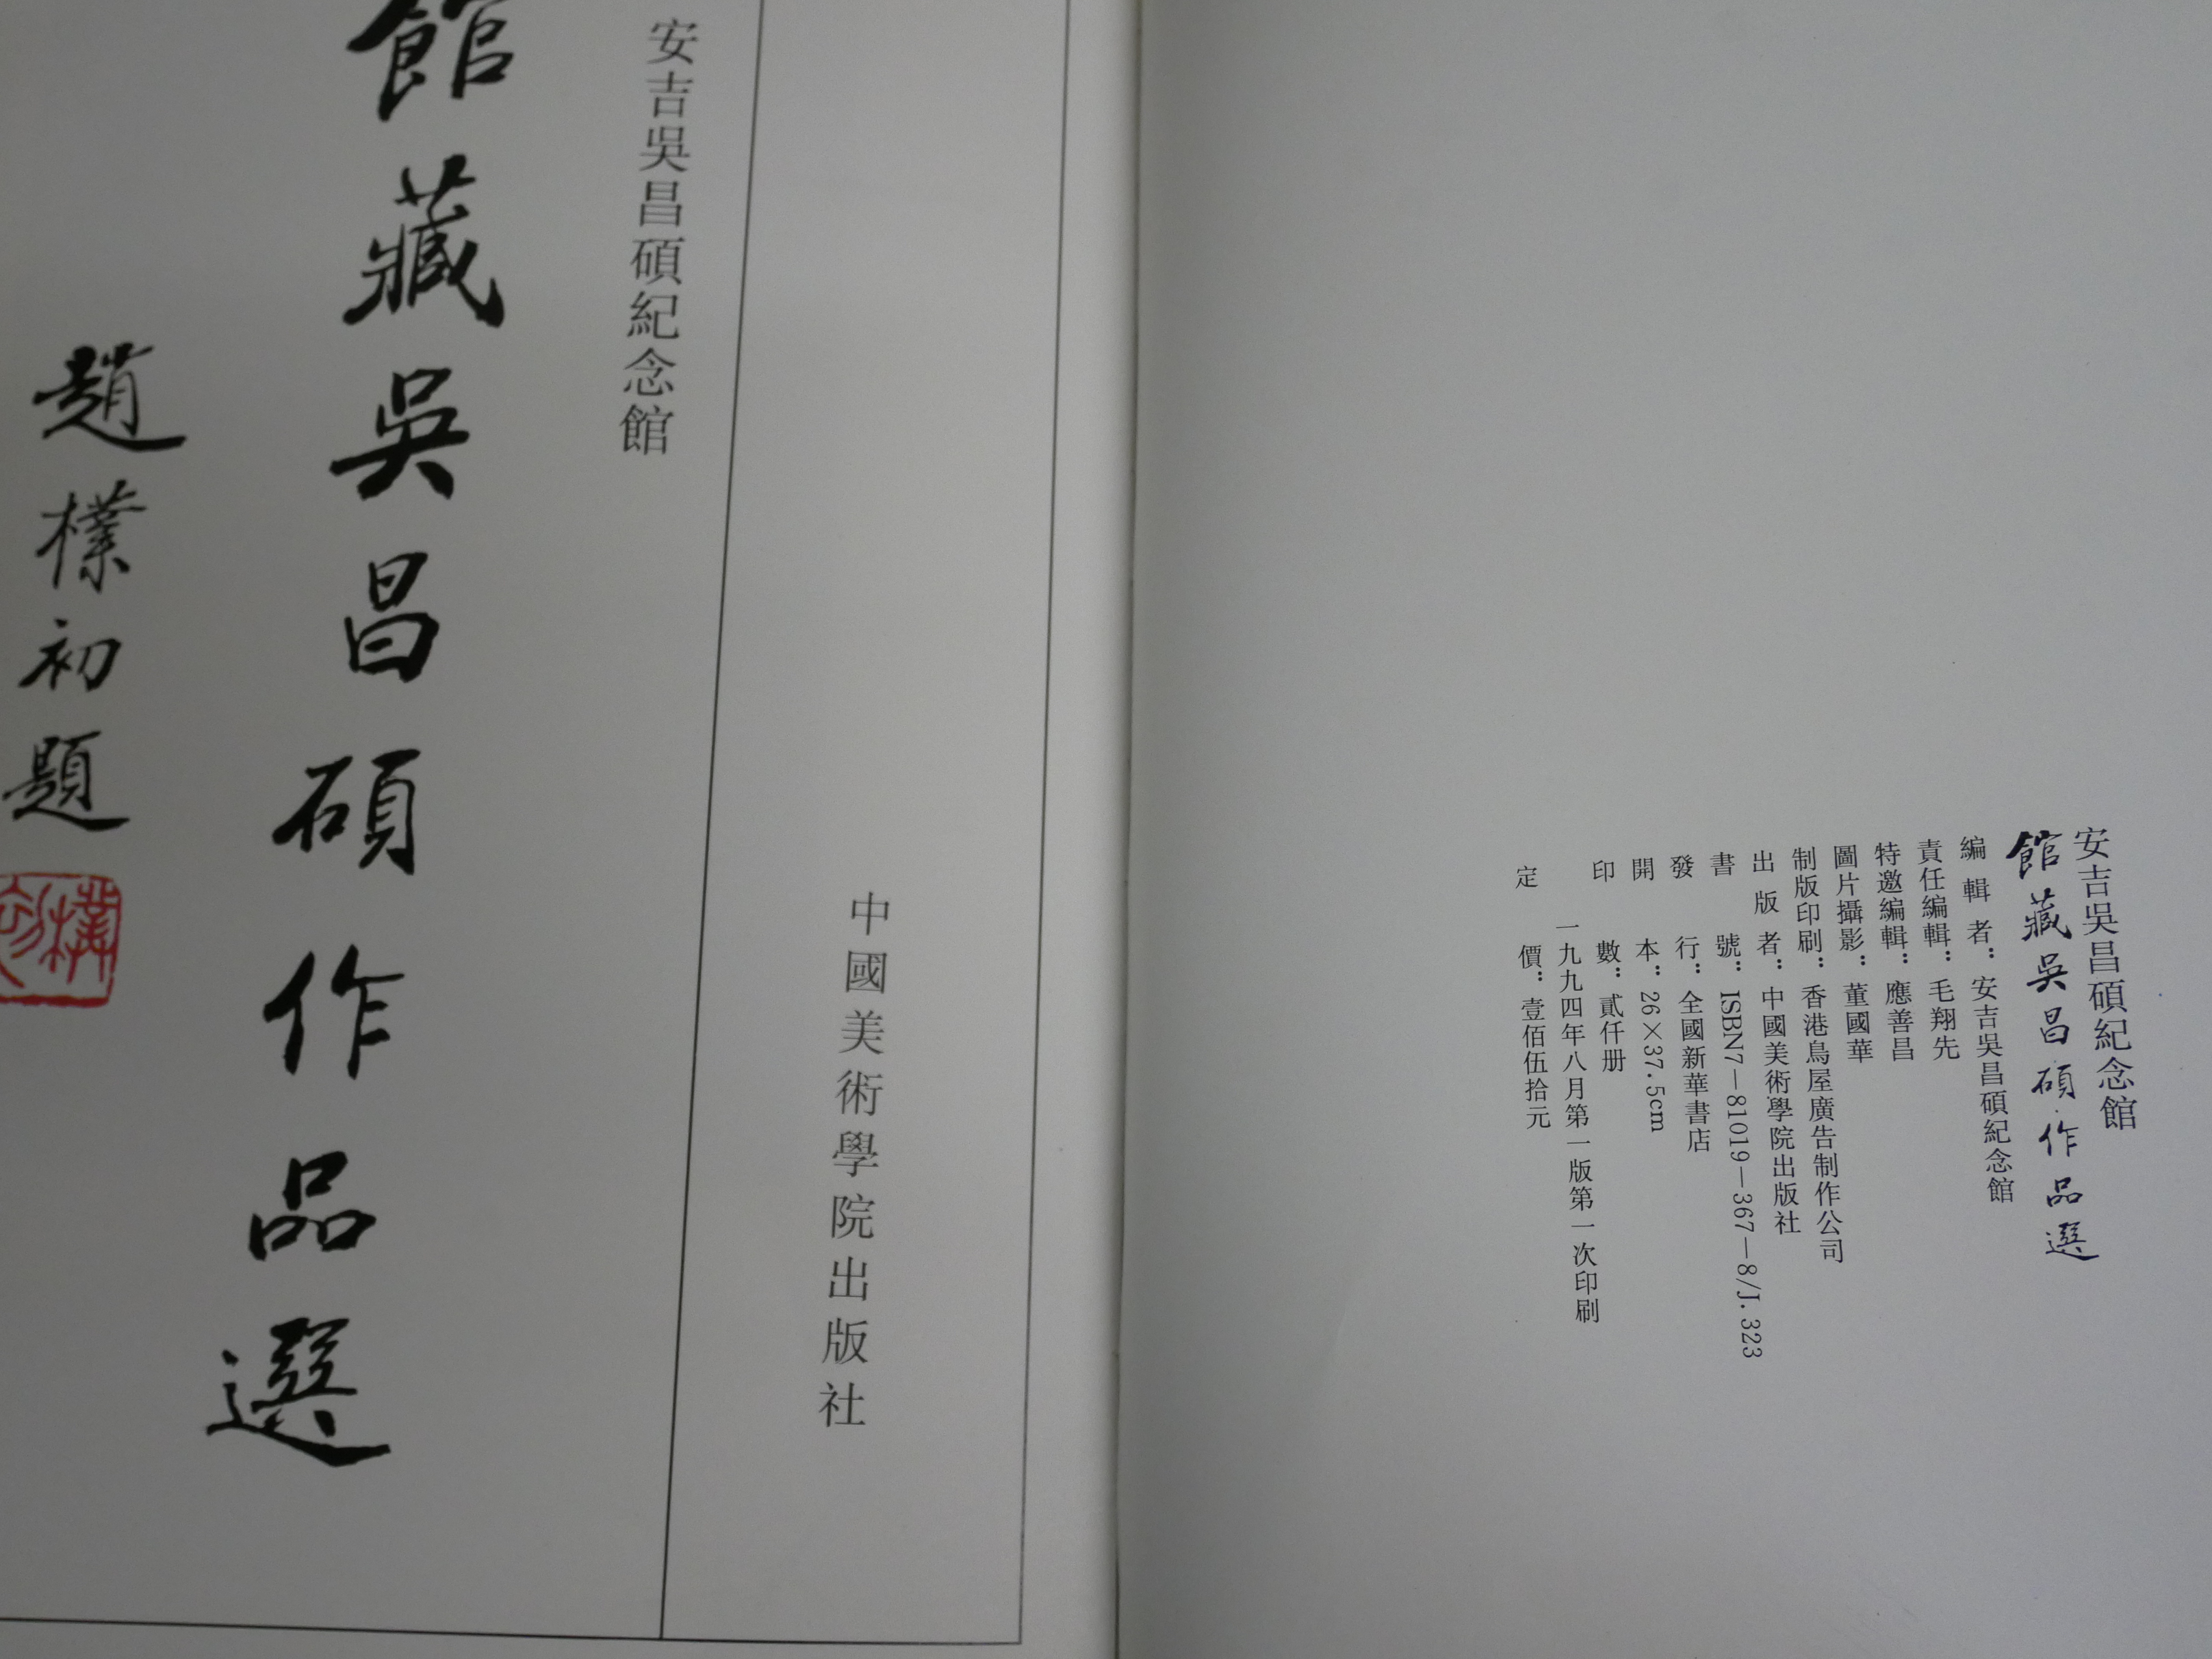 安吉吳昌碩紀念館
館藏吳昌碩作品選
趙樸初題
樸初
中國美術學院出版社
安吉吳昌碩紀念館
館藏吳昌碩作品選
編輯者：安吉吳昌碩紀念館
責任編輯：毛翔先
特邀編輯：應善昌
圖片攝影：董國華
制版印刷：香港鳥屋廣告制作公司
出版者：中國美術學院出版社
書號：ISBN7—81019—367—8/J.323
發行：全國新華書店
開本：26×37.5cm
印數：貳仟册
一九九四年八月第一版第一次印刷
定價：壹佰伍拾元